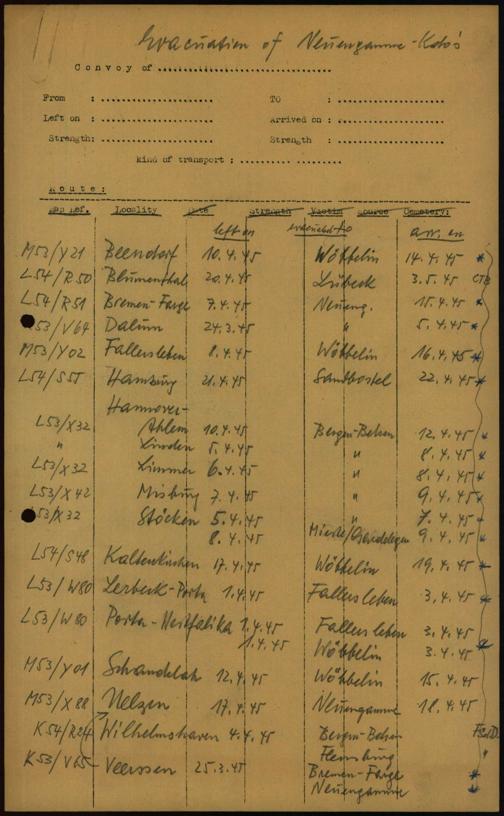 Evacuation of Neuengamme-Kdo's
Convoy of ................................
From : .................... TO : ....................
Left on : .................... Arrived on : ....................
Strength: .................... Strength : ....................
Kind of transport : ....................
Route:
Map Ref. Locality Date Strength Victim Source Cemetery:
left on evacuated to arr. on
M53/Y21 Beendorf 10.4.45 Wöbbelin 14.4.45 *
L54/R50 Blumenthal 20.4.45 Lübeck 3.5.45
L54/R51 Bremen-Farge 7.4.45 Neueng. 15.4.45 *
K53/V64 Dalum 24.3.45 " 5.4.45 *
M53/Y02 Fallersleben 8.4.45 Wöbbelin 16.4.45 *
L54/S55 Hamburg 21.4.45 Sandbostel 22.4.45 *
Hannover-
L53/X32 Ahlem 10.4.45 Bergen-Belsen 12.4.45 *
" Linden 5.4.45 " 8.4.45 *
L53/X32 Limmer 6.4.45 " 8.4.45 *
L53/X42 Misburg 7.4.45 " 9.4.45 *
L53/X32 Stöcken 5.4.45 " 7.4.45 *
8.4.45 Mieste/Gardelegen 9.4.45 *
L54/S48 Kaltenkirchen 17.4.45 Wöbbelin 19.4.45 *
L53/W80 Lerbeck-Porta 1.4.45 Fallersleben 3.4.45 *
L53/W80 Porta-Westfalika 1.4.45 Fallersleben 3.4.45
1.4.45 Wöbbelin 3.4.45 *
M53/Y01 Schandelah 12.4.45 Wöbbelin 15.4.45
M53/X88 Uelzen 17.4.45 Neuengamme 18.4.45 *
K54/R24 Wilhelmshaven 4.4.45 Bergen-Belsen
Flensburg "
K53/V65 Veerssen 25.3.45 Bremen-Farge *
Neuengamme *